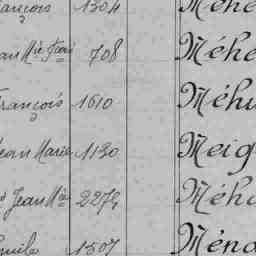 ançois 1304 Méhe
ean Mie Fran 708 Méhe
François 1610 Méhu
Jean Marie 1130 Meig
Jean Mie 2274 Méha
mile 1507 Ména